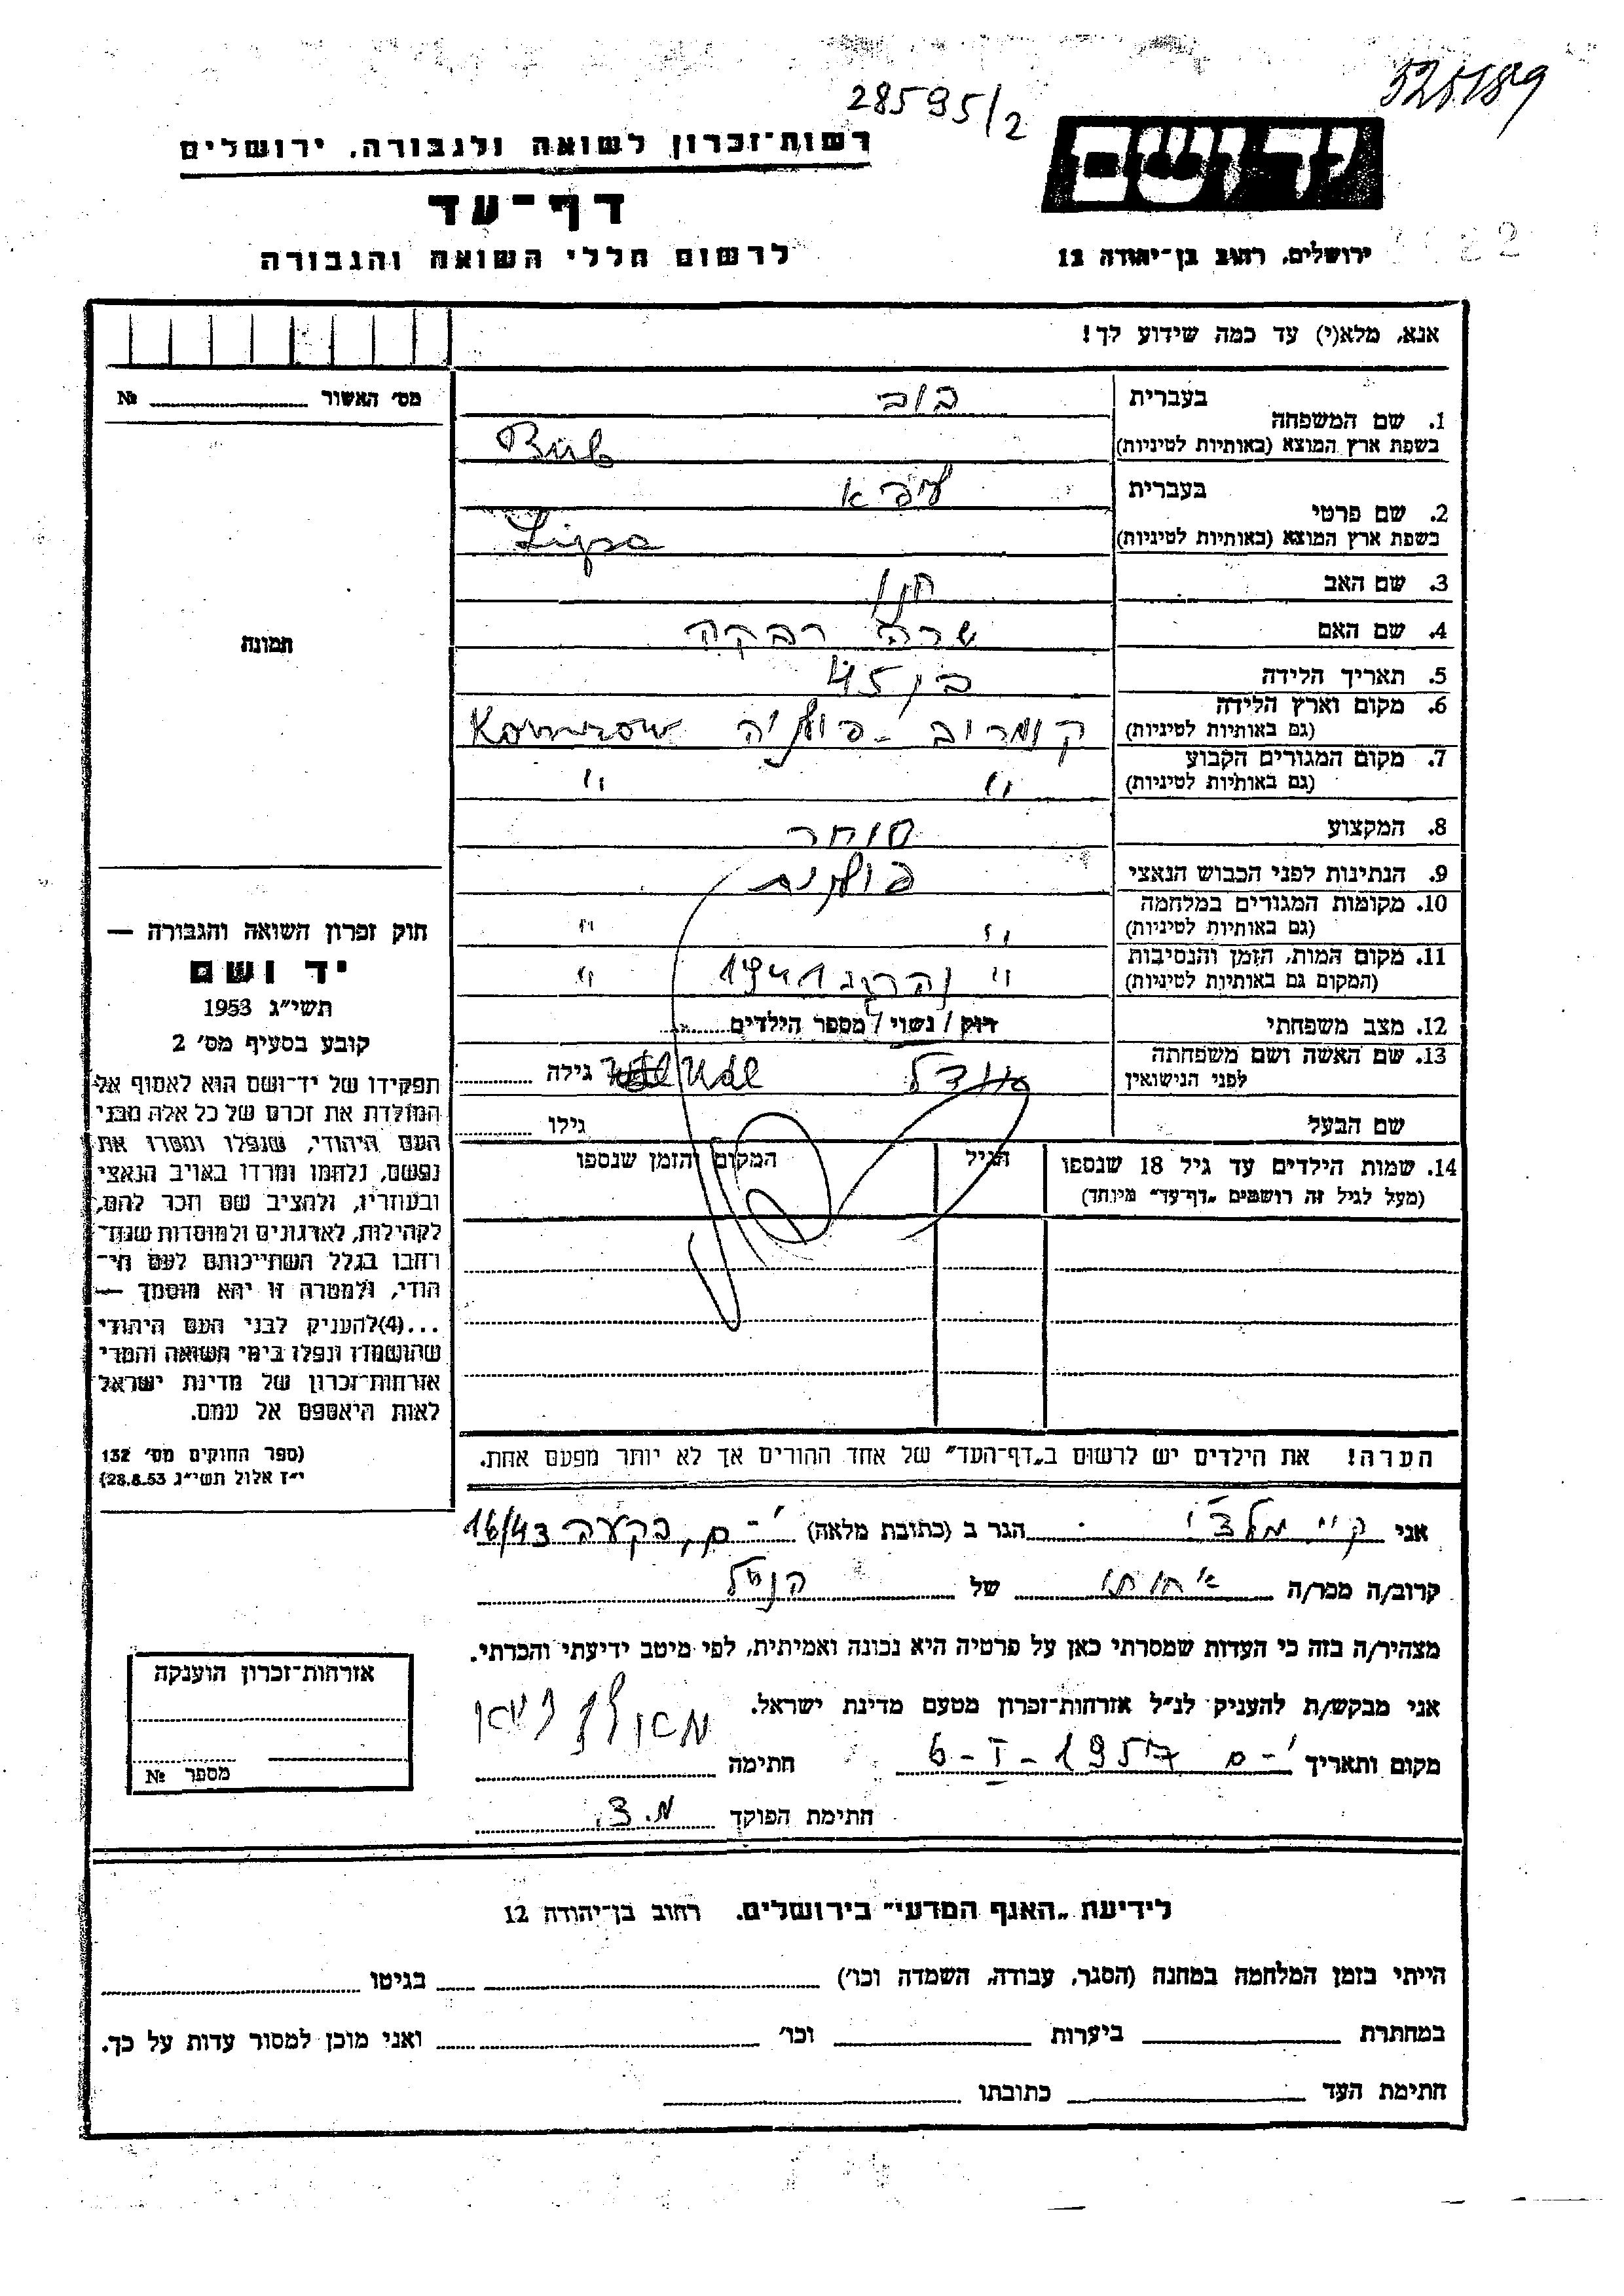 28595/2
525189
רשות־זכרון לשואה ולגבורה, ירושלים
יד ושם
דף־עד
לרשום חללי השואה והגבורה
ירושלים, רחוב בן־יהודה 12
אנא, מלא(י) עד כמה שידוע לך!
מס׳ האשור № 
1. שם המשפחה
בעברית
בוב
בשפת ארץ המוצא (באותיות לטיניות)
Bub
2. שם פרטי
בעברית
ליפא
בשפת ארץ המוצא (באותיות לטיניות)
Lipa
3. שם האב
חנן
4. שם האם
שרה רבקה
5. תאריך הלידה
בן 45
6. מקום וארץ הלידה
(גם באותיות לטיניות)
קומרוב - פולניה Komrow
7. מקום המגורים הקבוע
(גם באותיות לטיניות)
" "
8. המקצוע
סוחר
9. הנתינות לפני הכבוש הנאצי
פולנית
10. מקומות המגורים במלחמה
(גם באותיות לטיניות)
" "
11. מקום המות, הזמן והנסיבות
(המקום גם באותיות לטיניות)
" נהרג 1941 "
12. מצב משפחתי
רוק / נשוי / מספר הילדים
13. שם האשה ושם משפחתה
לפני הנישואין
גילה
שם הבעל
גילו
14. שמות הילדים עד גיל 18 שנספו
(מעל לגיל זה רושמים „דף־עד״ מיוחד)
הגיל
המקום והזמן שנספו
תמונה
חוק זכרון השואה והגבורה —
יד ושם
תשי״ג 1953
קובע בסעיף מס׳ 2
תפקידו של יד־ושם הוא לאסוף אל
המולדת את זכרם של כל אלה מבני
העם היהודי, שנפלו ומסרו את
נפשם, נלחמו ומרדו באויב הנאצי
ובעוזריו, ולהציב שם וזכר להם,
לקהילות, לארגונים ולמוסדות שנח־
רחבו בגלל השתייכותם לעם הי־
הודי, ולמטרה זו יהא מוסמך —
...(4)להעניק לבני העם היהודי
שהושמדו ונפלו בימי השואה והמרי
אזרחות־זכרון של מדינת ישראל
לאות היאספם אל עמם.
(ספר החוקים מס׳ 132
י״ז אלול תשי״ג 28.8.53)
הערה! את הילדים יש לרשום ב„דף־העד״ של אחד ההורים אך לא יותר מפעם אחת.
אני הגר ב (כתובת מלאה) י-ם, בקעה 16/43
קרוב/ה מכר/ה של
מצהיר/ה בזה כי העדות שמסרתי כאן על פרטיה היא נכונה ואמיתית, לפי מיטב ידיעתי והכרתי.
אני מבקש/ת להעניק לנ״ל אזרחות־זכרון מטעם מדינת ישראל.
מקום ותאריך י-ם 6-I-1957 חתימה
חתימת הפוקד מ.צ.
אזרחות־זכרון הוענקה
מספר №
לידיעת „האגף המדעי״ בירושלים, רחוב בן־יהודה 12
הייתי בזמן המלחמה במחנה (הסגר, עבודה, השמדה וכו׳) בגיטו
במחתרת ביערות וכו׳ ואני מוכן למסור עדות על כך.
חתימת העד כתובתו